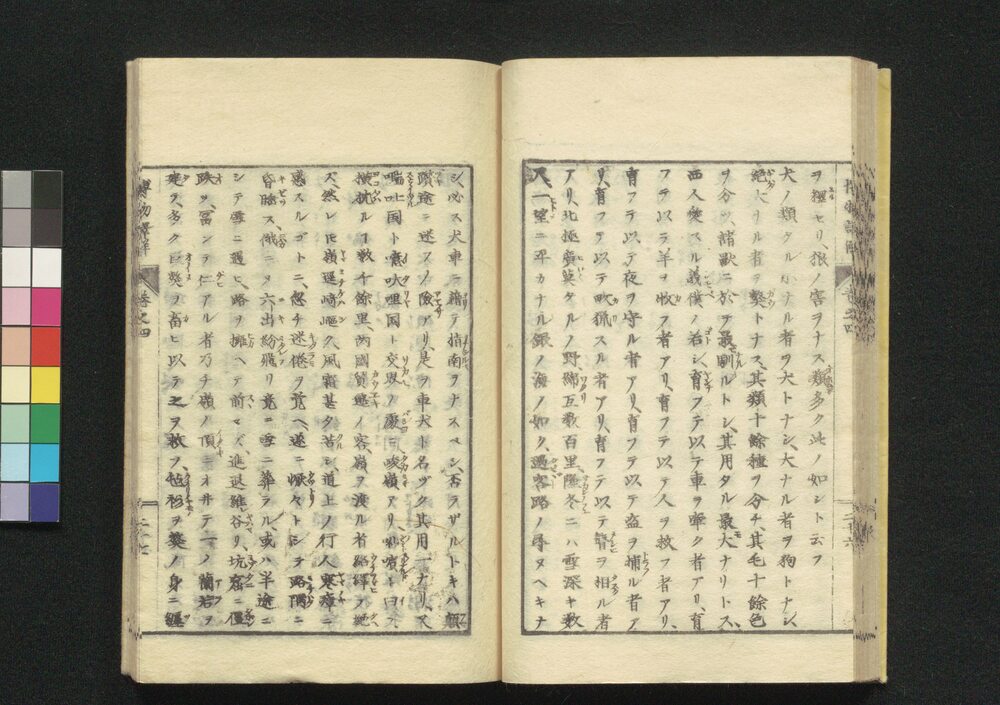 ヲ種セリ、狼ノ害ヲナス類多ク此ノ如シト云フ
犬ノ類タル小ナル者ヲ犬トナシ、大ナル者ヲ狗トナシ、
絶大ナル者ヲ獒トナス、其類十餘種ヲ分チ、其毛十餘色
ヲ分ツ、諸獸ニ於テ最馴ルトシ、其用タル最大ナリトス、
西人愛スル義僕ノ若シ、育フテ以テ車ヲ牽ク者アリ、育
フテ以テ羊ヲ牧フ者アリ、育フテ以テ人ヲ救フ者アリ、
育フテ以テ夜ヲ守ル者アリ、育フテ以テ盗ヲ捕ル者ア
リ、育フテ以テ畋猟スル者アリ、育フテ以テ瞽ヲ相ル者
アリ、北極廣莫タルノ野、綿亙数百里、隆冬ニハ雪深キ数
尺、一望ニ平カナル銀ノ海ノ如ク、過客路ノ尋ヌヘキナ
シ、必ス犬車ニ藉テ指南ヲナスベシ、否ラザルトキハ顛
躓途ニ迷フノ險アリ、是ヲ車犬ト名ヅク其用一ナリ、又
喘吐国ト意吠哩国ト交界ノ處ニ峻嶺アリ、
横抗ル丁数千餘里、両國貿遷ノ客、嶺ヲ渡ル者絡繹ヲ絶
ス、然レ𪜈嶺邐崎嶇ク、風霜甚タ苦シ、道上ノ行人寒瘴ニ
感スルゴトニ、忽チ迷倦ヲ覚ヘ、遂ニ懨々トシテ路隅ニ
昏睡ス俄ニメ六出紛飛リ竟ニ雪ニ葬ラル、或ハ半途ニ
シテ雪ニ遇ヒ、路ヲ擁ヘテ前マズ、進退維谷リ、坑窟ニ僵
跌ッ、冨ンテ仁アル者乃チ嶺ノ頂ニオ井テ一ノ蘭若ヲ
建ラ、多ク巨獒ヲ畜ヒ以テ之ヲ救フ、毡衫ヲ獒ノ身ニ纏
博物譯解
巻之四
二十七